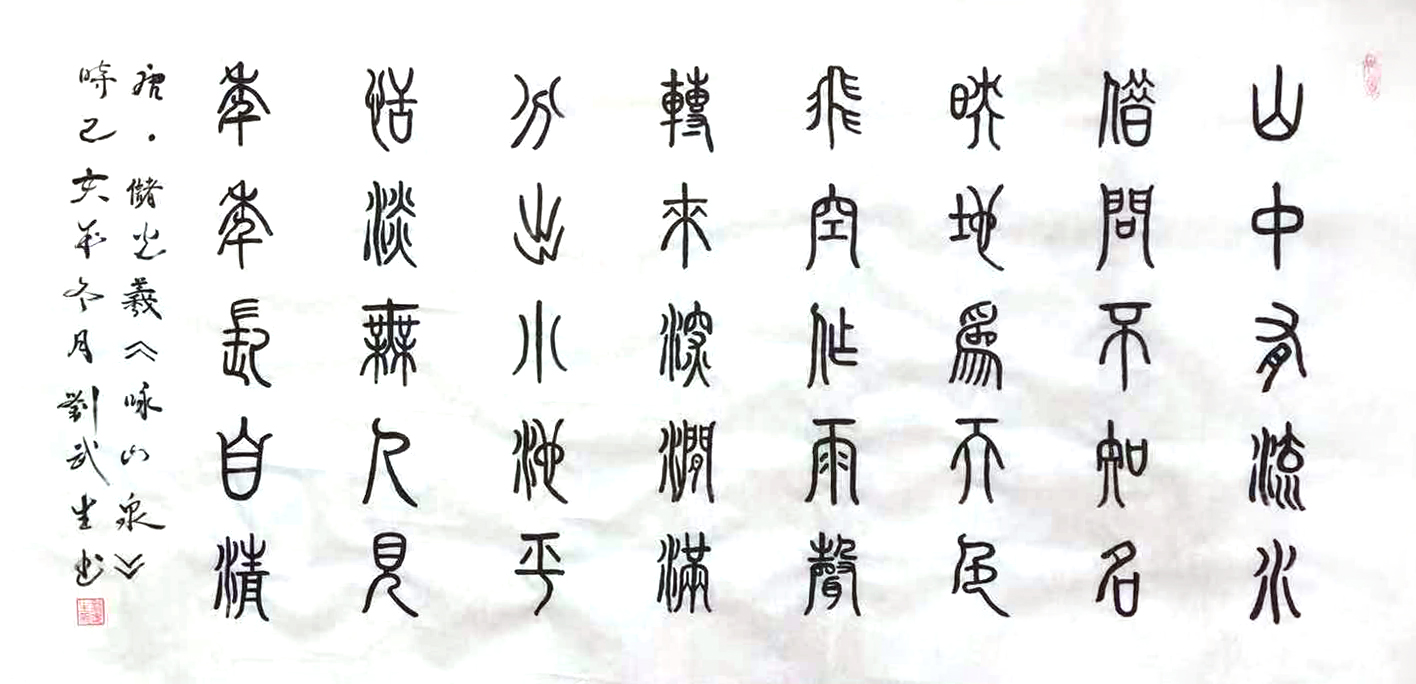 山中有流水
借問不知名
映地爲天色
飛空作雨聲
轉來深澗滿
分出小池平
恬淡無人見
年年長自清
唐·儲光羲《咏山泉》
時己亥年冬月劉武生书